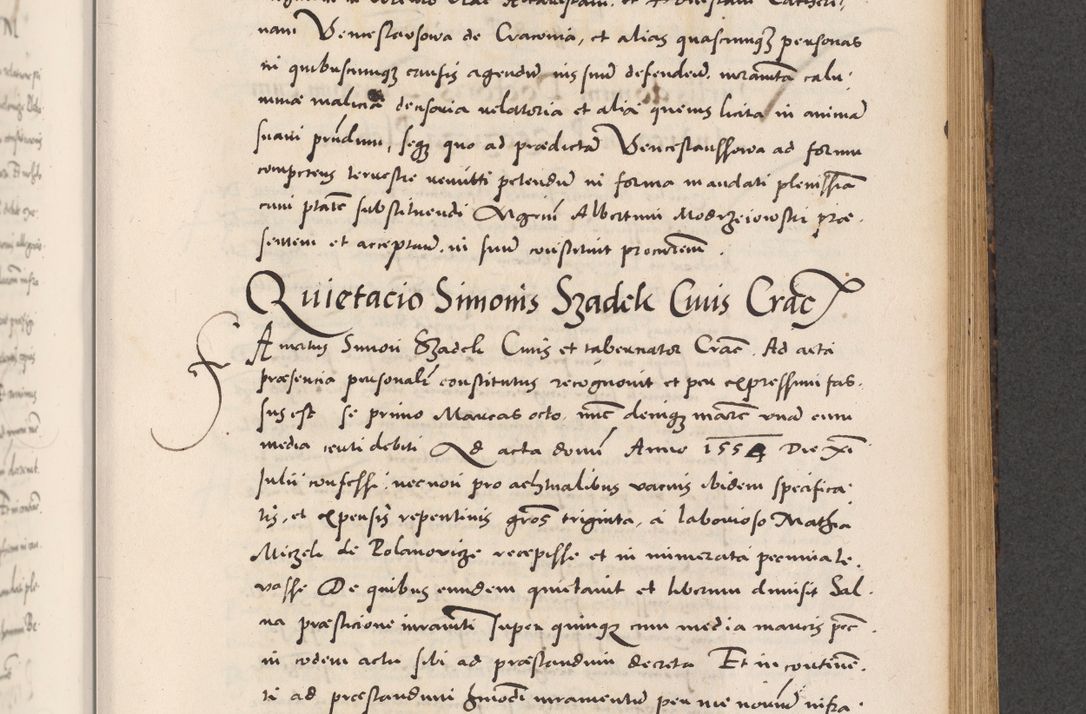 nam Venceslaussowa de Cracovia, et alias quascunqz personas
in quibuscunqz causis agendum ius suum defendendum, iuramenta calu-
mniæ maliciæ decisoria relatoria et alia quævis licita in animam
suam præstandum, seqz quo ad prædictam Venceslaussowa ad forum
competens terrestre remitti petendum in forma mandati plenissima
cum ptate substituendi Mgrm Albertum Modrzeiowski præ-
sentem et acceptantem, in suum constituit procuratorem.
Quietacio Simonis Szadek Civis Crac
Amatus Simon Szadek Civis et tabernator Crac. Ad acta
præsencia personalr constitutus recognovit et per expressum fas-
sus est se primo Marcas octo, nunc deniqz marcam unam cum
media centi debiti Ad acta domini Anno 1554 Die XI
Julii confessi, necnon pro actualibus vacuis ibidem specifica-
tis, et expensis repentinis gros triginta, a laborioso Mathia
Miczek de Polanovicze recepisse et in numerata pecunia le-
vasse De quibus eundem quietavit et liberum dimisit Sal-
va præsticione iuramenti super quinqz cum media marcis pec
in eodem actu sibi ad præstandum decreta Et in contine-
ti ad præstandum hmodi iuramentum per me notarium infra-